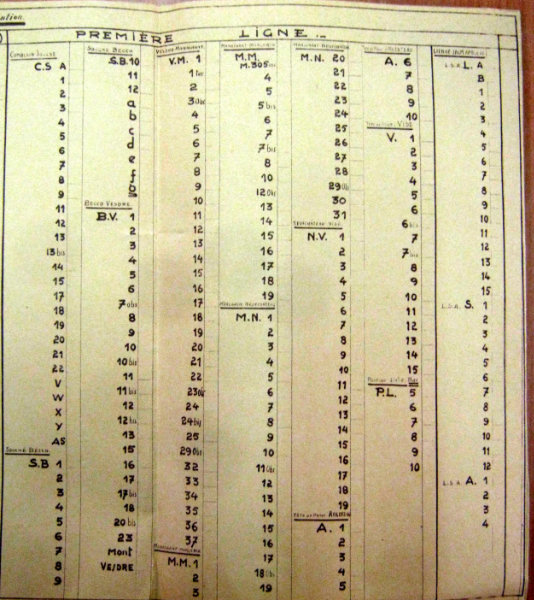 PREMIÈRE LIGNE
C.S A
1
2
3
4
5
6
7
8
9
11
12
13
13 bis
14
15
17
18
19
20
21
22
V
W
X
Y
AS
S.B 1
2
3
4
5
6
7
8
9
S.B.10
11
12
a
b
c
d
e
f
g
B.V. 1
2
3
4
5
6
7 obs
8
9
10
10 bis
11
11 bis
12
12 bis
13
15
16
17
17 bis
18
20 bis
23
Mont
VESDRE
V.M. 1
1 bis
2
3 Obs
4
5
6
7
8
9
10
11
12
13
14
15
16
17
18
19
20
21
22
23 Obs
24
24 bis
25
29 Obs
32
33
34
35
36
37
M.M. 1
2
3
M.M.
M.305
4
5
5 bis
6
7
7 bis
8
10
12 Obs
13
14
15
16
17
18
19
M.N. 1
2
3
4
5
6
7
8
9
10
11 Obs
12
13
14
15
16
17
18 Obs
19
M.N. 20
21
22
23
24
25
26
27
28
29 Ob
30
31
N.V. 1
2
3
4
5
6
7
8
9
10
11
12
13
14
15
16
17
18
19
A. 1
2
3
4
5
A. 6
7
8
9
10
V. 1
2
3
4
5
6
6 bis
7
7 bis
8
9
10
11
12
13
14
15
P.L. 5
6
7
8
9
10
L. A
B
1
2
3
4
5
6
7
8
9
10
11
12
13
14
15
S. 1
2
3
4
5
6
7
8
9
10
11
12
A. 1
2
3
4